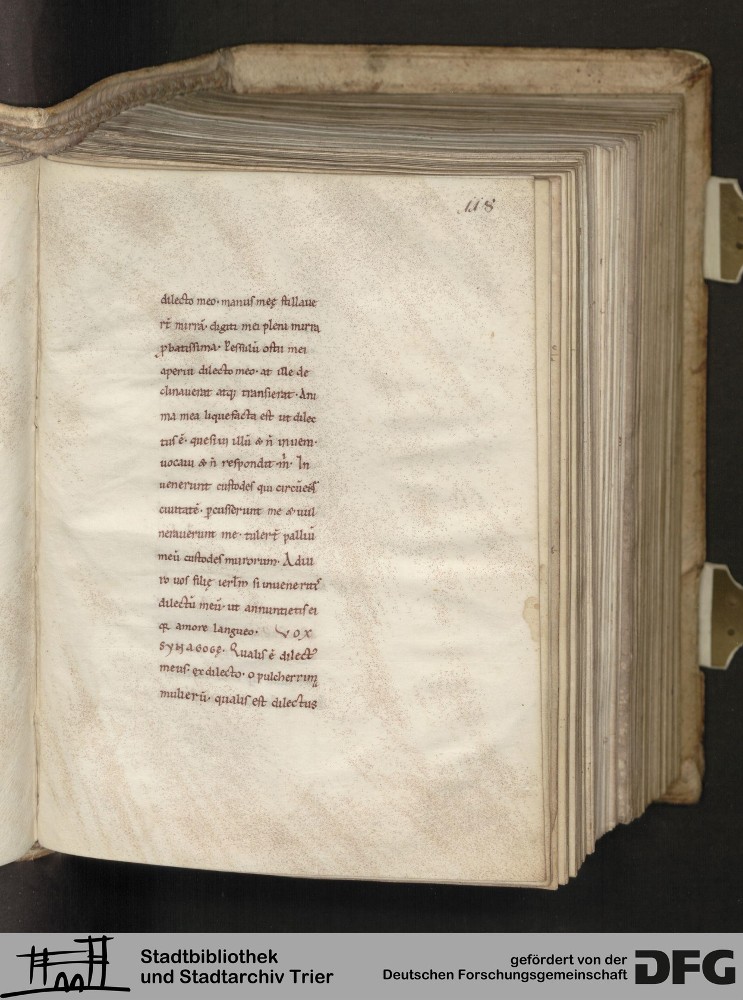 118
dilecto meo· manus meę stillaue
rt̄ mirrā· digiti mei pleni mirra
ꝓbatissima· Pessulū ostii mei
aperui dilecto meo· at ille de
clinauerat atq; transierat· Ani
ma mea liquefacta est ut dilec
tus ē· quesiui illū & n̄ inueni·
uocaui & n̄ respondit m̄· In
uenerunt custodes qui circūeūt
ciuitatē· ꝑcusserunt me & uul
nerauerunt me· tulert̄ palliū
meū custodes murorum· Adiu
ro uos filię ierlm̄ si inueneritis
dilectū meū· ut annuntietis ei
qa amore langueo· VOX
SYNAGOGĘ· Qualis ē dilect᷒
meus· ex dilecto· o pulcherrima
mulierū· qualis est dilectus
Stadtbibliothek
und Stadtarchiv Trier
gefördert von der
Deutschen Forschungsgemeinschaft
DFG